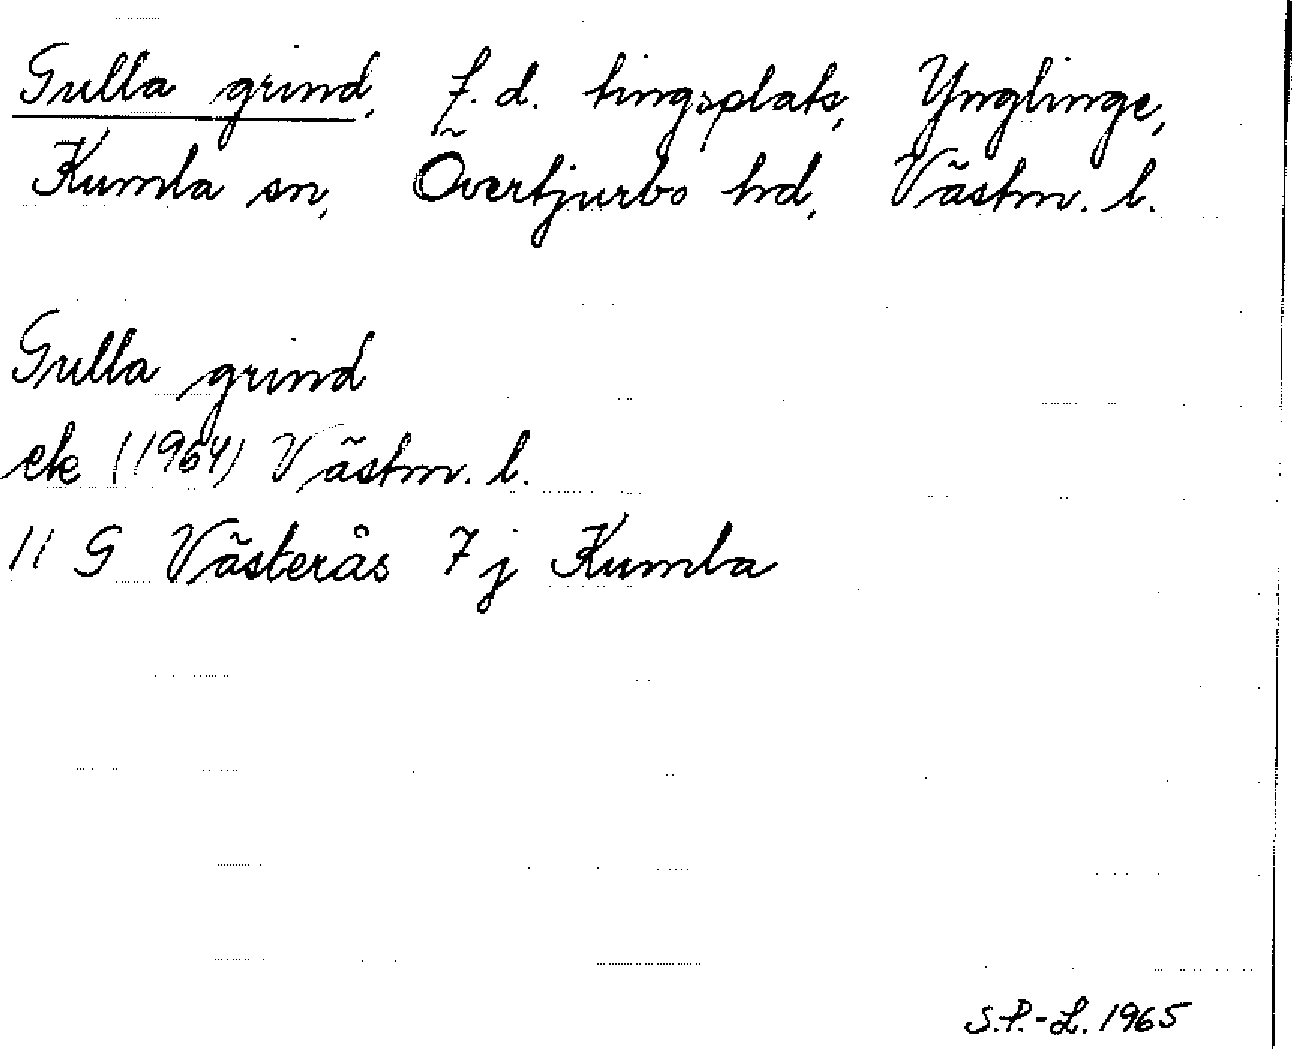 Gulla grind, f.d. tingsplats, Ynglinge,
Kumla sn, Övertjurbo hd, Västm. l.
Gulla grind
ek (1964) Västm. l.
11 G Västerås 7 j Kumla
S.P.-L. 1965